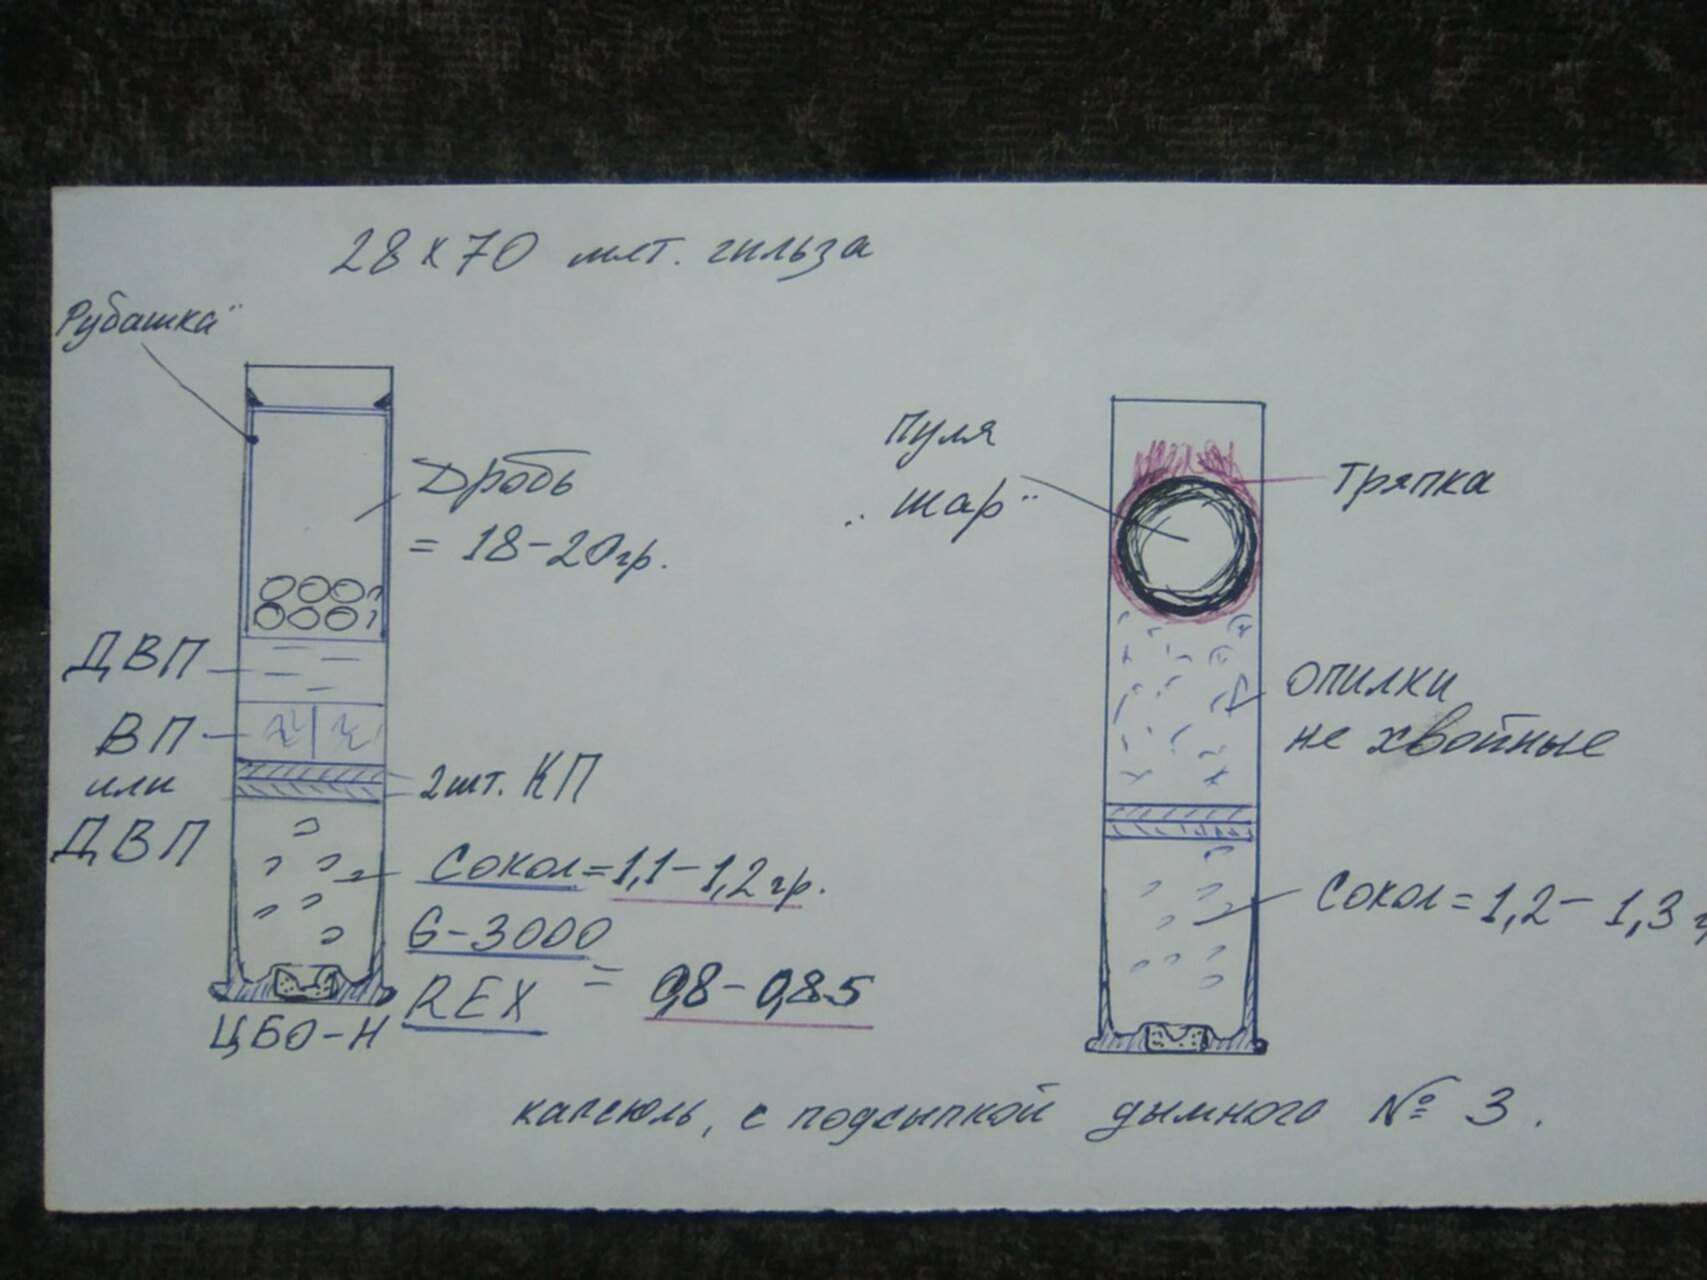 28х70 мет. гильза
Рубашка"
Дробь
= 18-20гр.
ДВП
ВП
или
ДВП
2шт. КП
Сокол=1,1-1,2гр.
G-3000
REX = 0,8-0,85
ЦБО-Н
Пуля
"шар"
Тряпка
опилки
не хвойные
Сокол=1,2- 1,3
капсюль, с подсыпкой дымного № 3.